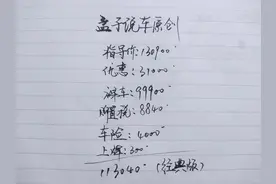 孟子说车原创
指导价:130900
优惠:31000
裸车:99900
购置税:8840
车险:4000
上牌:300
113040 (经典版)